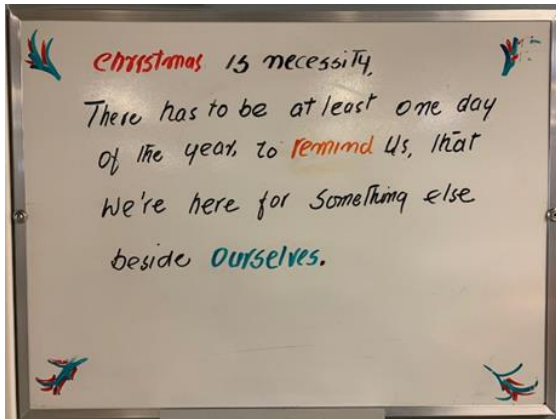 Christmas is necessity,
There has to be at least one day
of the year, to remind us, that
we're here for something else
beside ourselves.